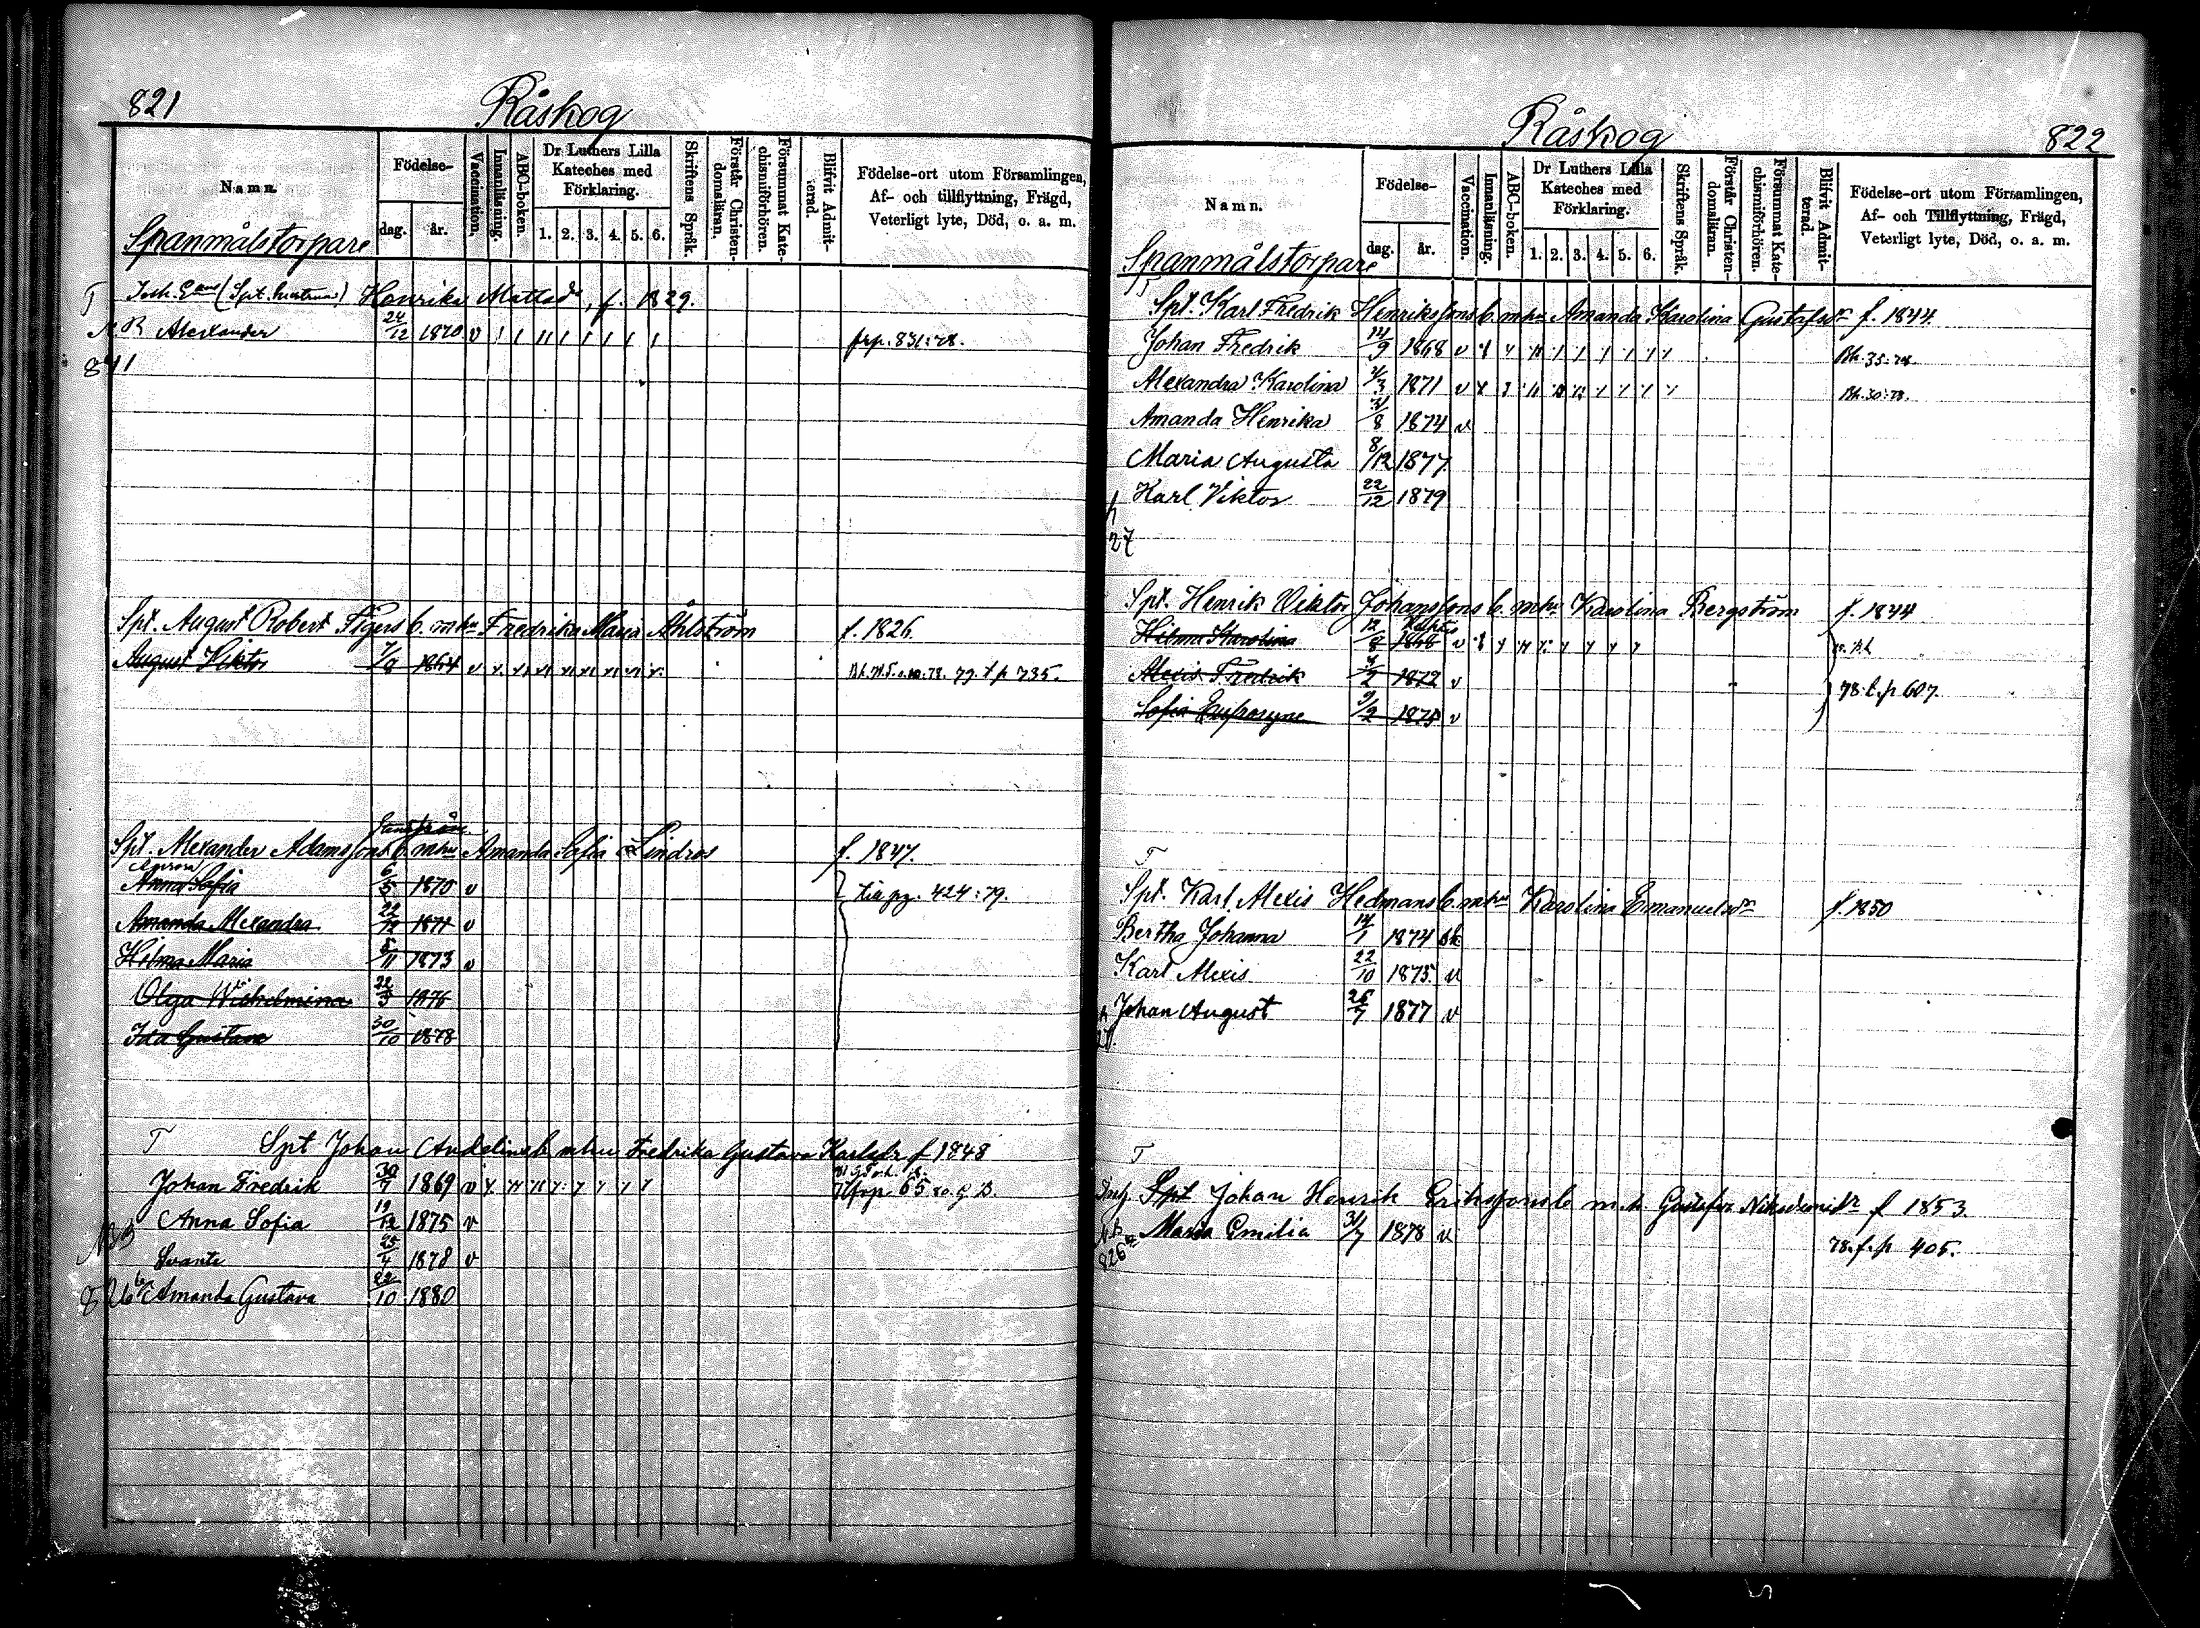 821
Råskog
Namn.
Födelse-
dag.
år.
Vaccination.
Innanläsning.
ABC-boken.
Dr Luthers Lilla
Kateches med
Förklaring.
1. 2. 3. 4. 5. 6.
Skriftens Språk.
Förstår Christen-
domsläran.
Försummat Kate-
chismiförhören.
Blifvit Admit-
terad.
Födelse-ort utom Församlingen,
Af- och tillflyttning, Frägd,
Veterligt lyte, Död, o. a. m.
Spanmålstorpare
T Henrika Mattsdr, f. 1829.
Alexander 24/12 1870 v frp. 831:78.
841
Spt. August Robert Tigers b. m hu Fredrika Maria Åhlström f. 1826.
August Viktor 7/8 1864 v 79. t p 735.
Spt. Alexander Adamssons b. m hu Amanda Sofia Lindros f. 1847.
Anna Sofia 6/5 1870 v 424:79.
Amanda Alexandra 22/12 1871 v
Hilma Maria 5/11 1873 v
Olga Wilhelmina 22/3 1876
Ida Gustava 30/10 1878
T Spt Johan Andelins b m hu Fredrika Gustava Karlsdr f 1848
Johan Fredrik 30/7 1869 v
Anna Sofia 19/12 1875 v
Svante 25/4 1878 v
826 Amanda Gustava 22/10 1880
Råskog
822
Namn.
Födelse-
dag.
år.
Vaccination.
Innanläsning.
ABC-boken.
Dr Luthers Lilla
Kateches med
Förklaring.
1. 2. 3. 4. 5. 6.
Skriftens Språk.
Förstår Christen-
domsläran.
Försummat Kate-
chismiförhören.
Blifvit Admit-
terad.
Födelse-ort utom Församlingen,
Af- och Tillflyttning, Frägd,
Veterligt lyte, Död, o. a. m.
Spanmålstorpare
Spt. Karl Fredrik Henrikssons b. m hu Amanda Karolina Gustafsdr f. 1844.
Johan Fredrik 14/9 1868 v Bh. 35:78
Alexandra Karolina 4/3 1871 v Bh. 30:78.
Amanda Henrika 31/8 1874 v
Maria Augusta 8/12 1877.
Karl Viktor 22/12 1879
27
Spt. Henrik Viktor Johanssons b. m hu Karolina Bergström f. 1844
Hilma Karolina 12/8 1868 v
Alexis Fredrik 4/2 1872 v
78. t. p 607.
Sofia Eufrosyne 9/2 1875 v
T
Spt. Karl Alexis Hedmans b. m hu Karolina Emanuelsdr f. 1850
Bertha Johanna 14/1 1874
Karl Alexis 22/10 1875 v
Johan August 26/7 1877 v
T
Spt Johan Henrik Erikssons b m h Gustafva f 1853.
Maria Emilia 31/7 1878 v
78. f. p 405.
826